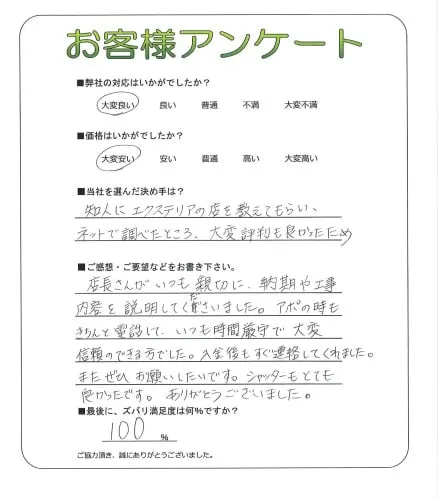 お客様アンケート
■弊社の対応はいかがでしたか？
大変良い 良い 普通 不満 大変不満
■価格はいかがでしたか？
大変安い 安い 普通 高い 大変高い
■当社を選んだ決め手は？
知人にエクステリアの店を教えてもらい、
ネットで調べたところ、大変評判も良かったため
■ご感想・ご要望などをお書き下さい。
店長さんがいつも親切に、納期や工事
内容を説明してくださいました。アポの時も
きちんと電話して、いつも時間厳守で大変
信頼のできる方でした。入金後もすぐ連絡してくれました。
またぜひお願いしたいです。シャッターもとても
良かったです。ありがとうございました。
■最後に、ズバリ満足度は何％ですか？
100 %
ご協力頂き、誠にありがとうございました。